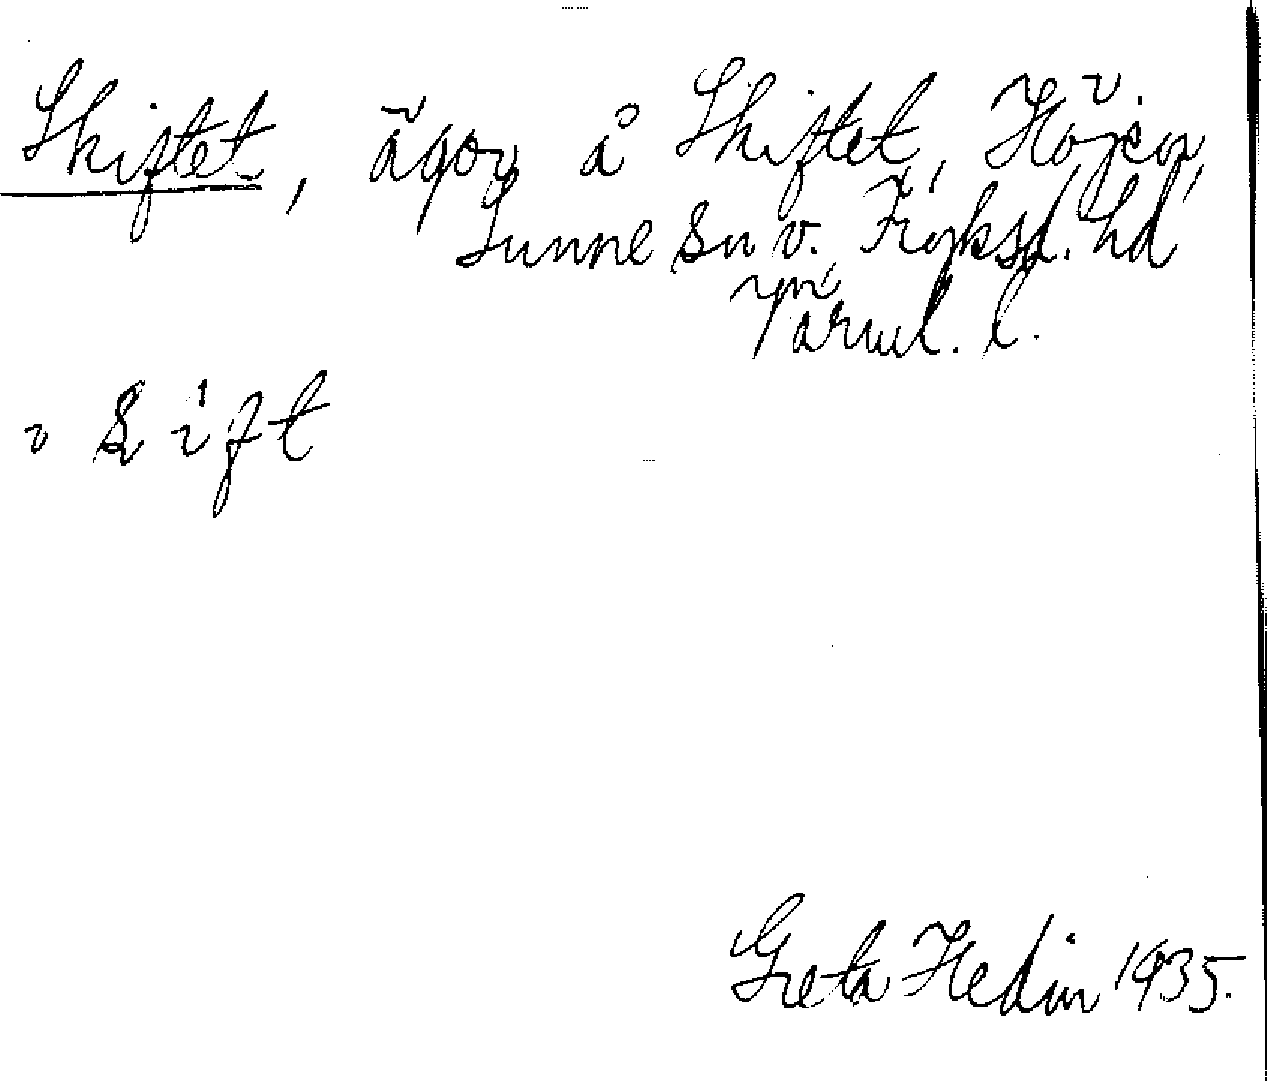 Skiftet, ägor å Skiftet, Höjen,
Sunne sn v. Fryksd. hd
Värml. l.
Greta Hedin 1935.